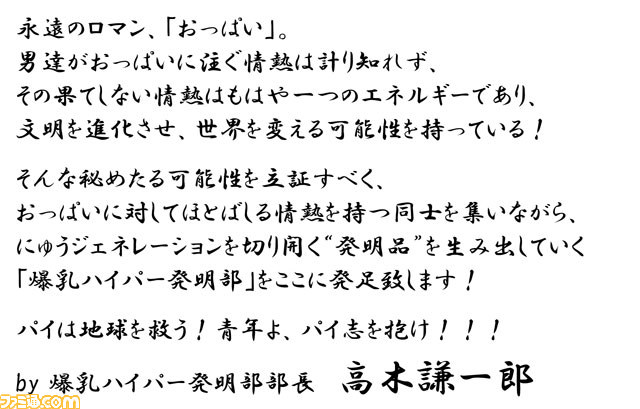 永遠のロマン、「おっぱい」。
男達がおっぱいに注ぐ情熱は計り知れず、
その果てしない情熱はもはや一つのエネルギーであり、
文明を進化させ、世界を変える可能性を持っている！
そんな秘めたる可能性を立証すべく、
おっぱいに対してほとばしる情熱を持つ同士を集いながら、
にゅうジェネレーションを切り開く“発明品”を生み出していく
「爆乳ハイパー発明部」をここに発足致します！
パイは地球を救う！青年よ、パイ志を抱け！！！
by 爆乳ハイパー発明部部長　高木謙一郎
ファミ通.com